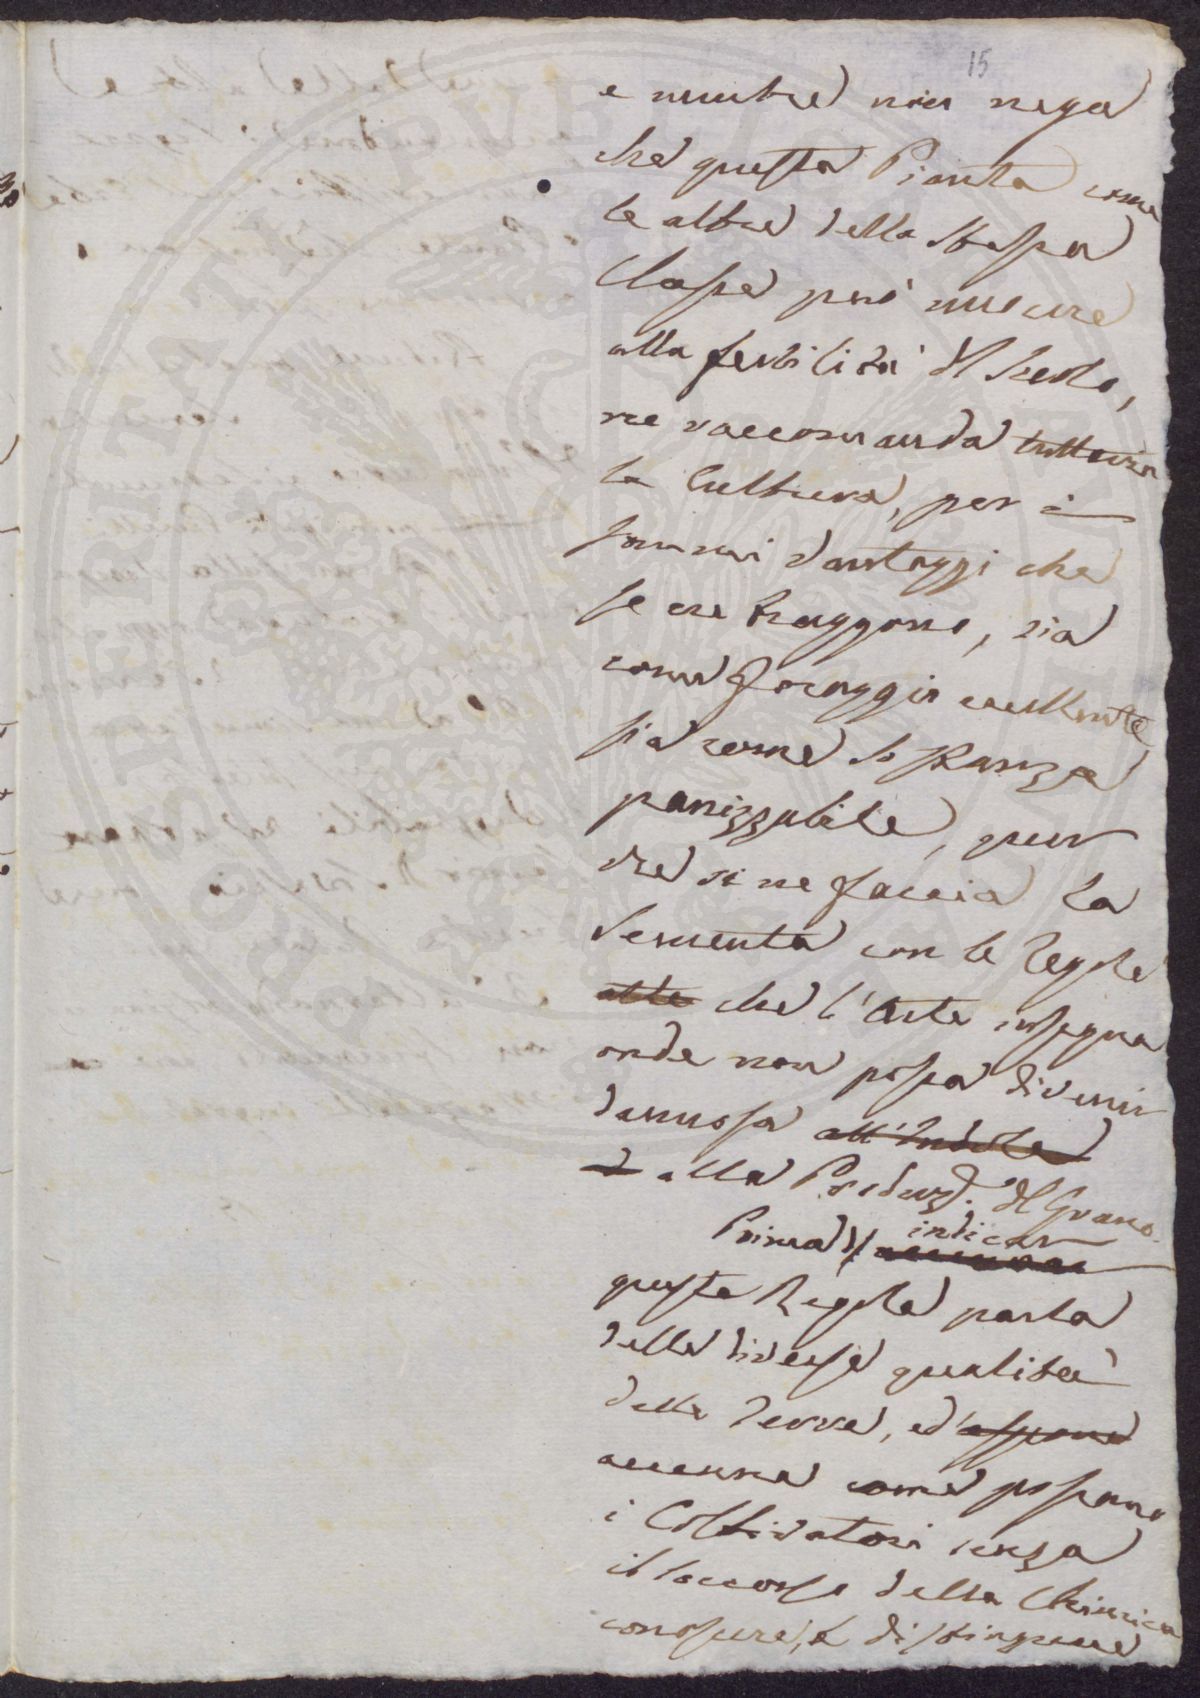 15
e mentre non nega
che questa Pianta come
le altre della stessa
Classe può nuocere
alla fertilità del Suolo,
ne raccomanda tuttavia
la Cultura, per i
sommi vantaggi che
se ne traggono, sia
come foraggio eccellente
sia come sostanza
panizzabile, quan
do si ne faccia la
sementa con le regole
che l'Arte insegna
onde non possa divenir
dannosa all'Indole
alla Produz. del Grano.
Prima di indicar
queste Regole parla
delle diverse qualità
delle Terre, ed espone
accenna come possano
i Coltivatori senza
il soccorso della Chimica
conoscere, e distinguere